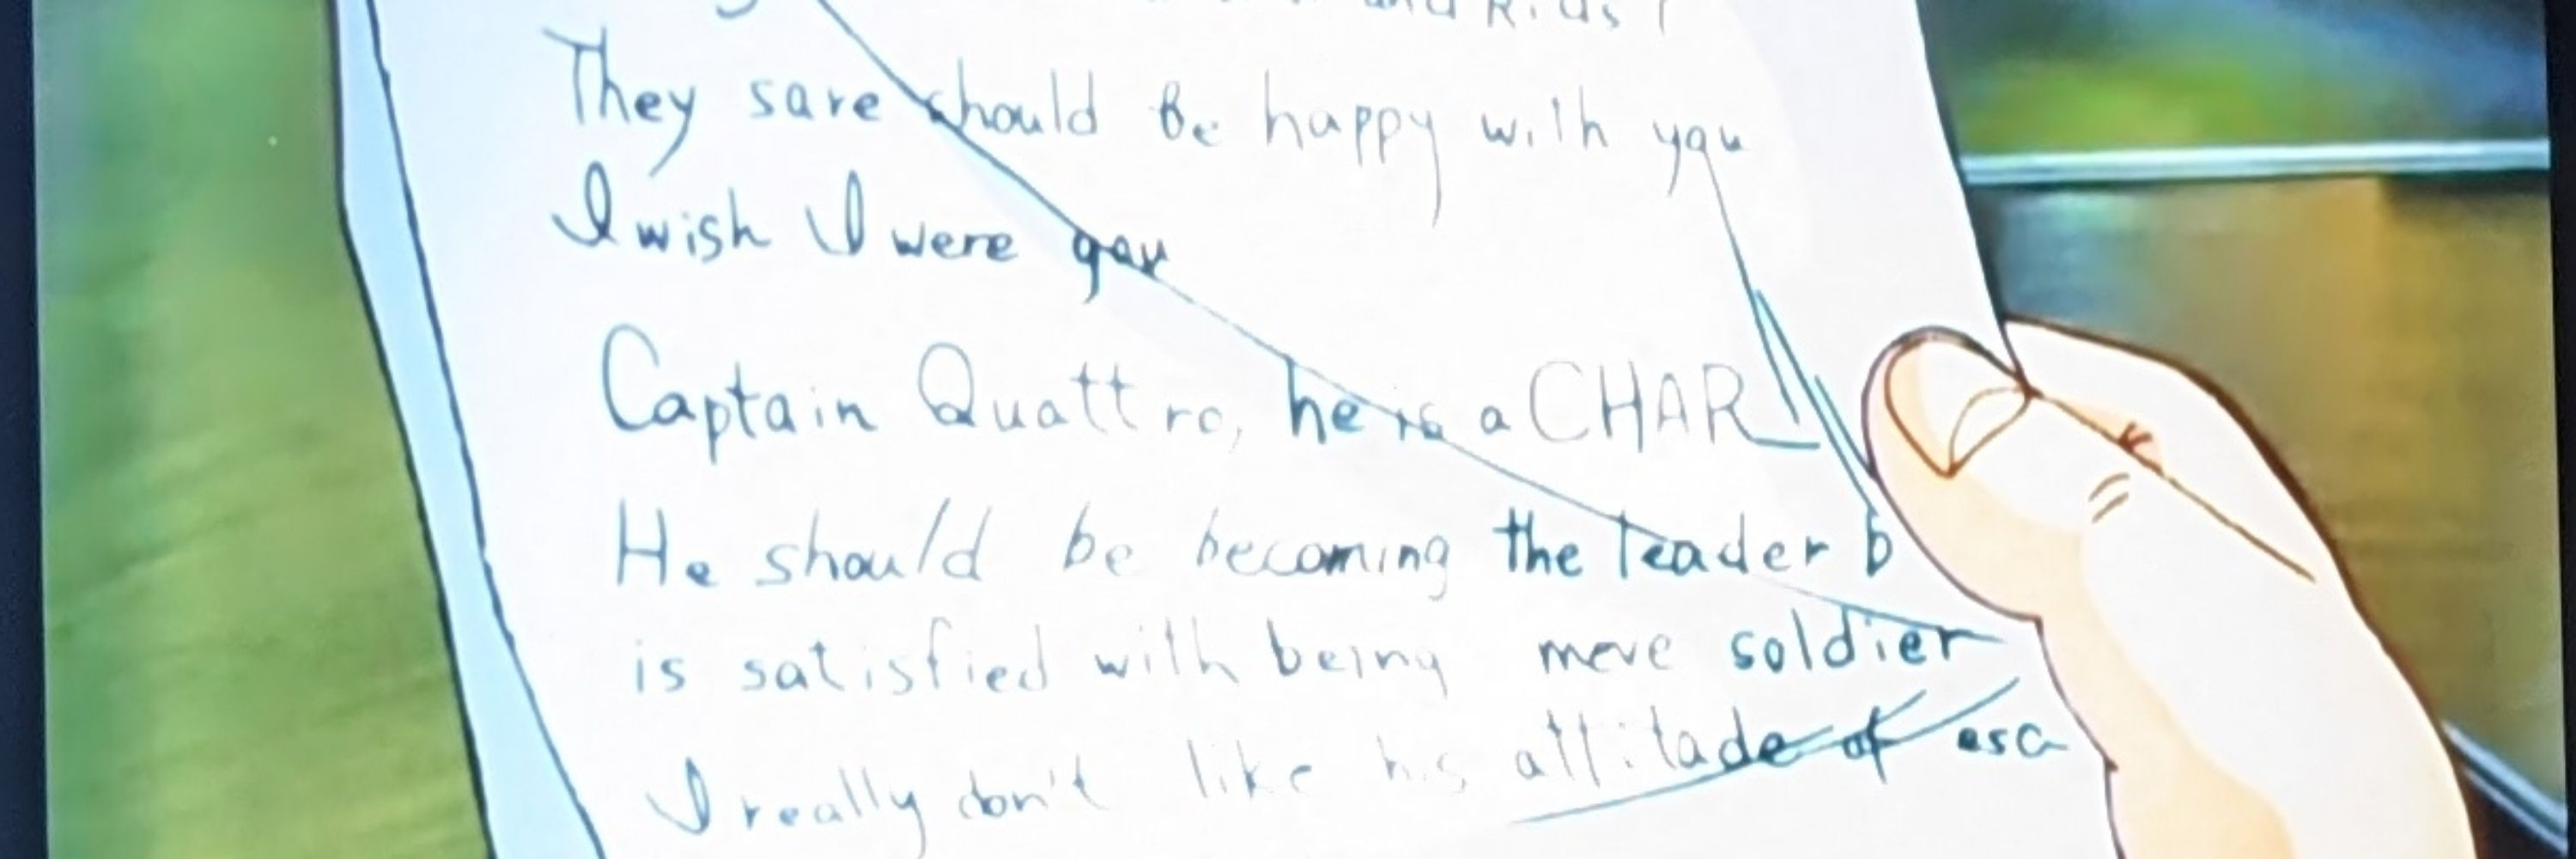 and Kids
They sare should Be happy with you
I wish I were gay
Captain Quattro, he is a CHAR
He should be becoming the leader b
is satisfied with being meve soldier
I really don't like his attitade of esc